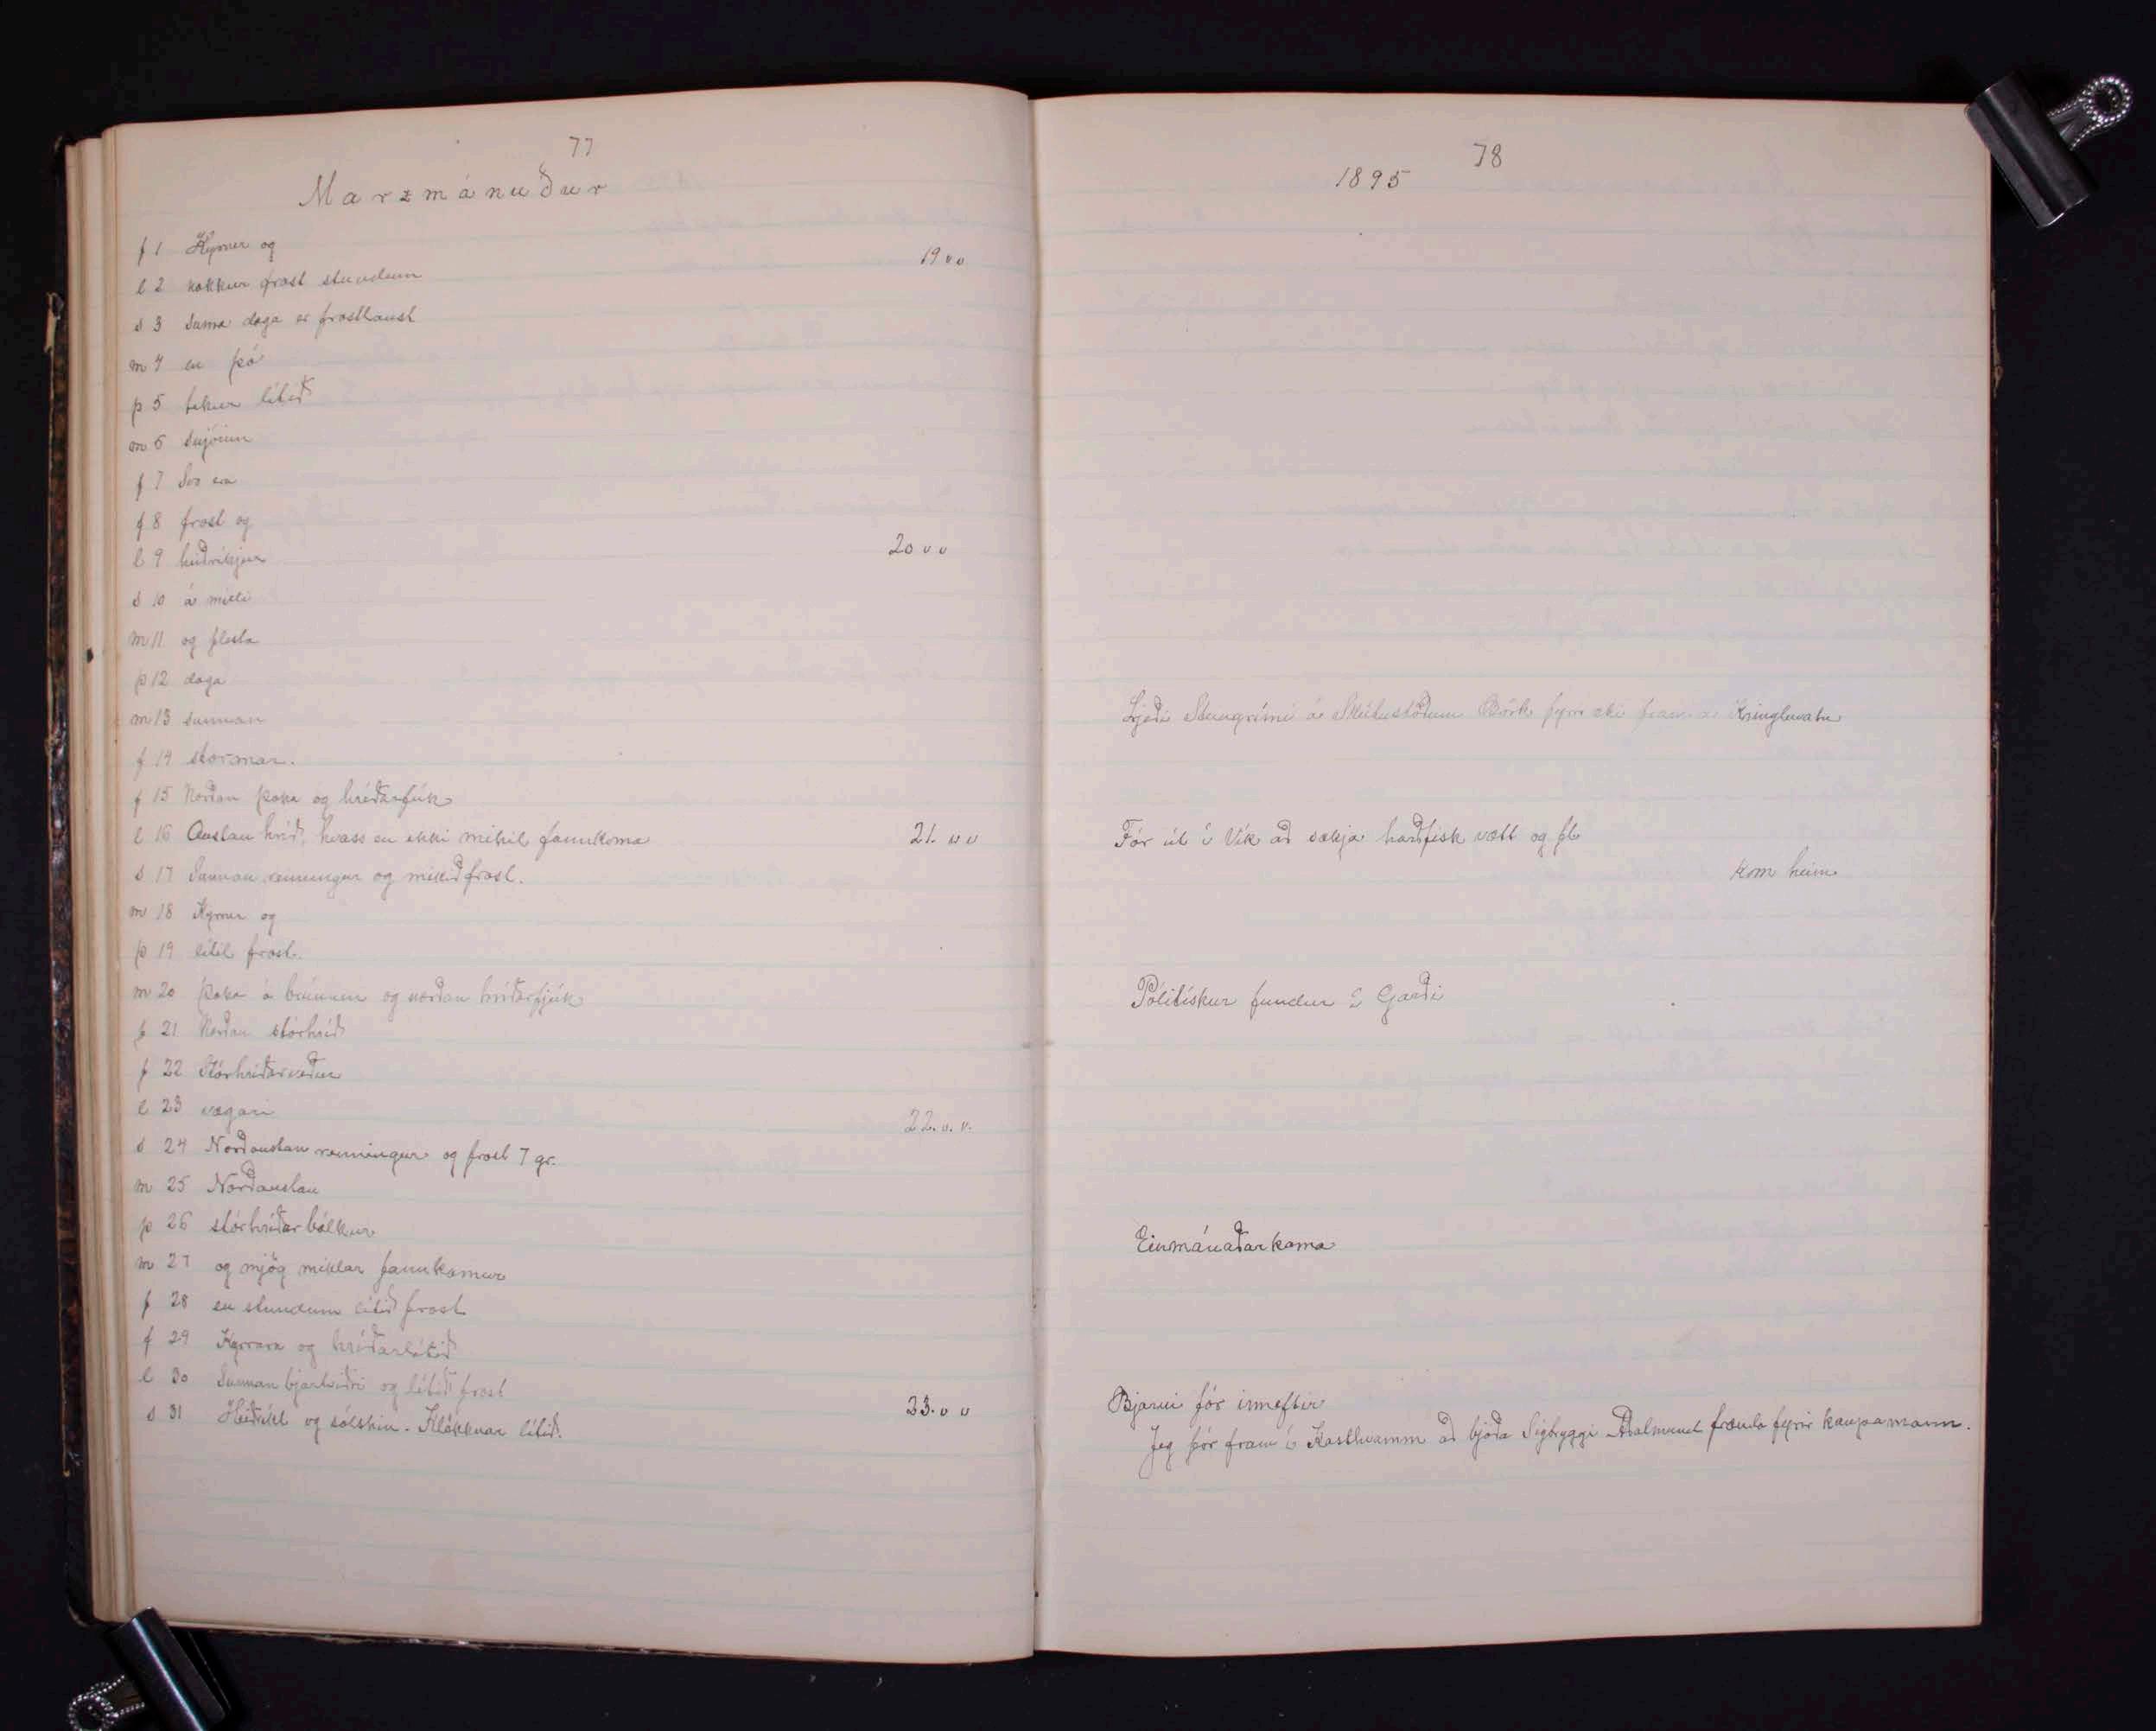 77
Marzmánuður
f 1 Kyrrur og
l 2 nokkur frost stundum
s 3 Suma daga er frostlaust
m 4 en þó
þ 5 tekur lítið
m 6 snjóinn
f 7 Svo eru
f 8 frost og
l 9 heiðríkjur
s 10 á milli
m 11 og flesta
þ 12 daga
m 13 sunnan
f 14 stormar.
f 15 Norðan þoka og hríðarfjúk
l 16 Austan hríð, hvass en ekki mikil fannkoma
s 17 Sunnan renningur og mikið frost.
m 18 Kyrrur og
þ 19 lítil frost.
m 20 Þoka á brúnum og norðan hríðarfjúk
f 21 Norðan stórhríð
f 22 Stórhríðarveður
l 23 vægari
s 24 Norðaustan renningur og frost 7 gr.
m 25 Norðaustan
þ 26 stórhríðarbálkur
m 27 og mjög miklar fannkomur
f 28 en stundum lítið frost
f 29 Kyrrara og hríðarlítið
l 30 Sunnan bjartviðri og lítið frost
s 31 Heiðríkt og sólskin. Klökknar lítið.
19 v v
20 v v
21. v v
22. v. v.
23. v v
78
1895
Ljeði Steingrími á Skútustöðum Börk fyrir eki fram á Kringluvatn
Fór út í Vík að sækja harðfisk vætt og fl
kom heim
Pólitískur fundur í Garði
Einmánaðarkoma
Bjarni fór inneftir
Jeg fór fram í Kasthvamm að bjóða Sigtryggi Aðalmund frænda fyrir kaupamann.